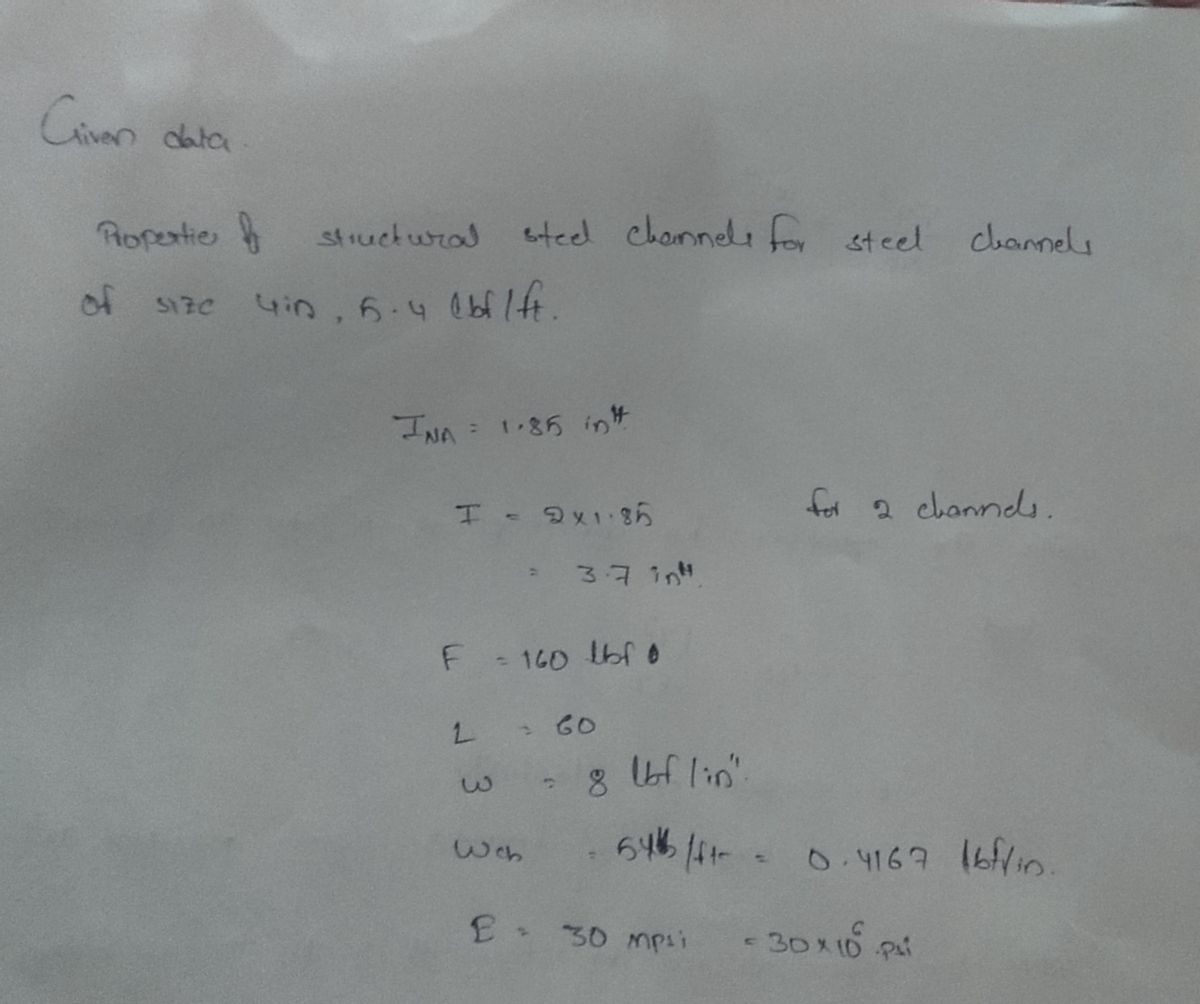 Given data.
Properties of structural steel channels for steel channels
of size 4in, 5.4 lbf/ft.
INA = 1.85 in⁴
I = 2×1.85 for 2 channels.
= 3.7 in⁴.
F = 160 lbf
L = 60
w = 8 lbf/in".
Wch = /ft = 0.4167 lbf/in.
E = 30 mpsi = 30×10⁶ psi